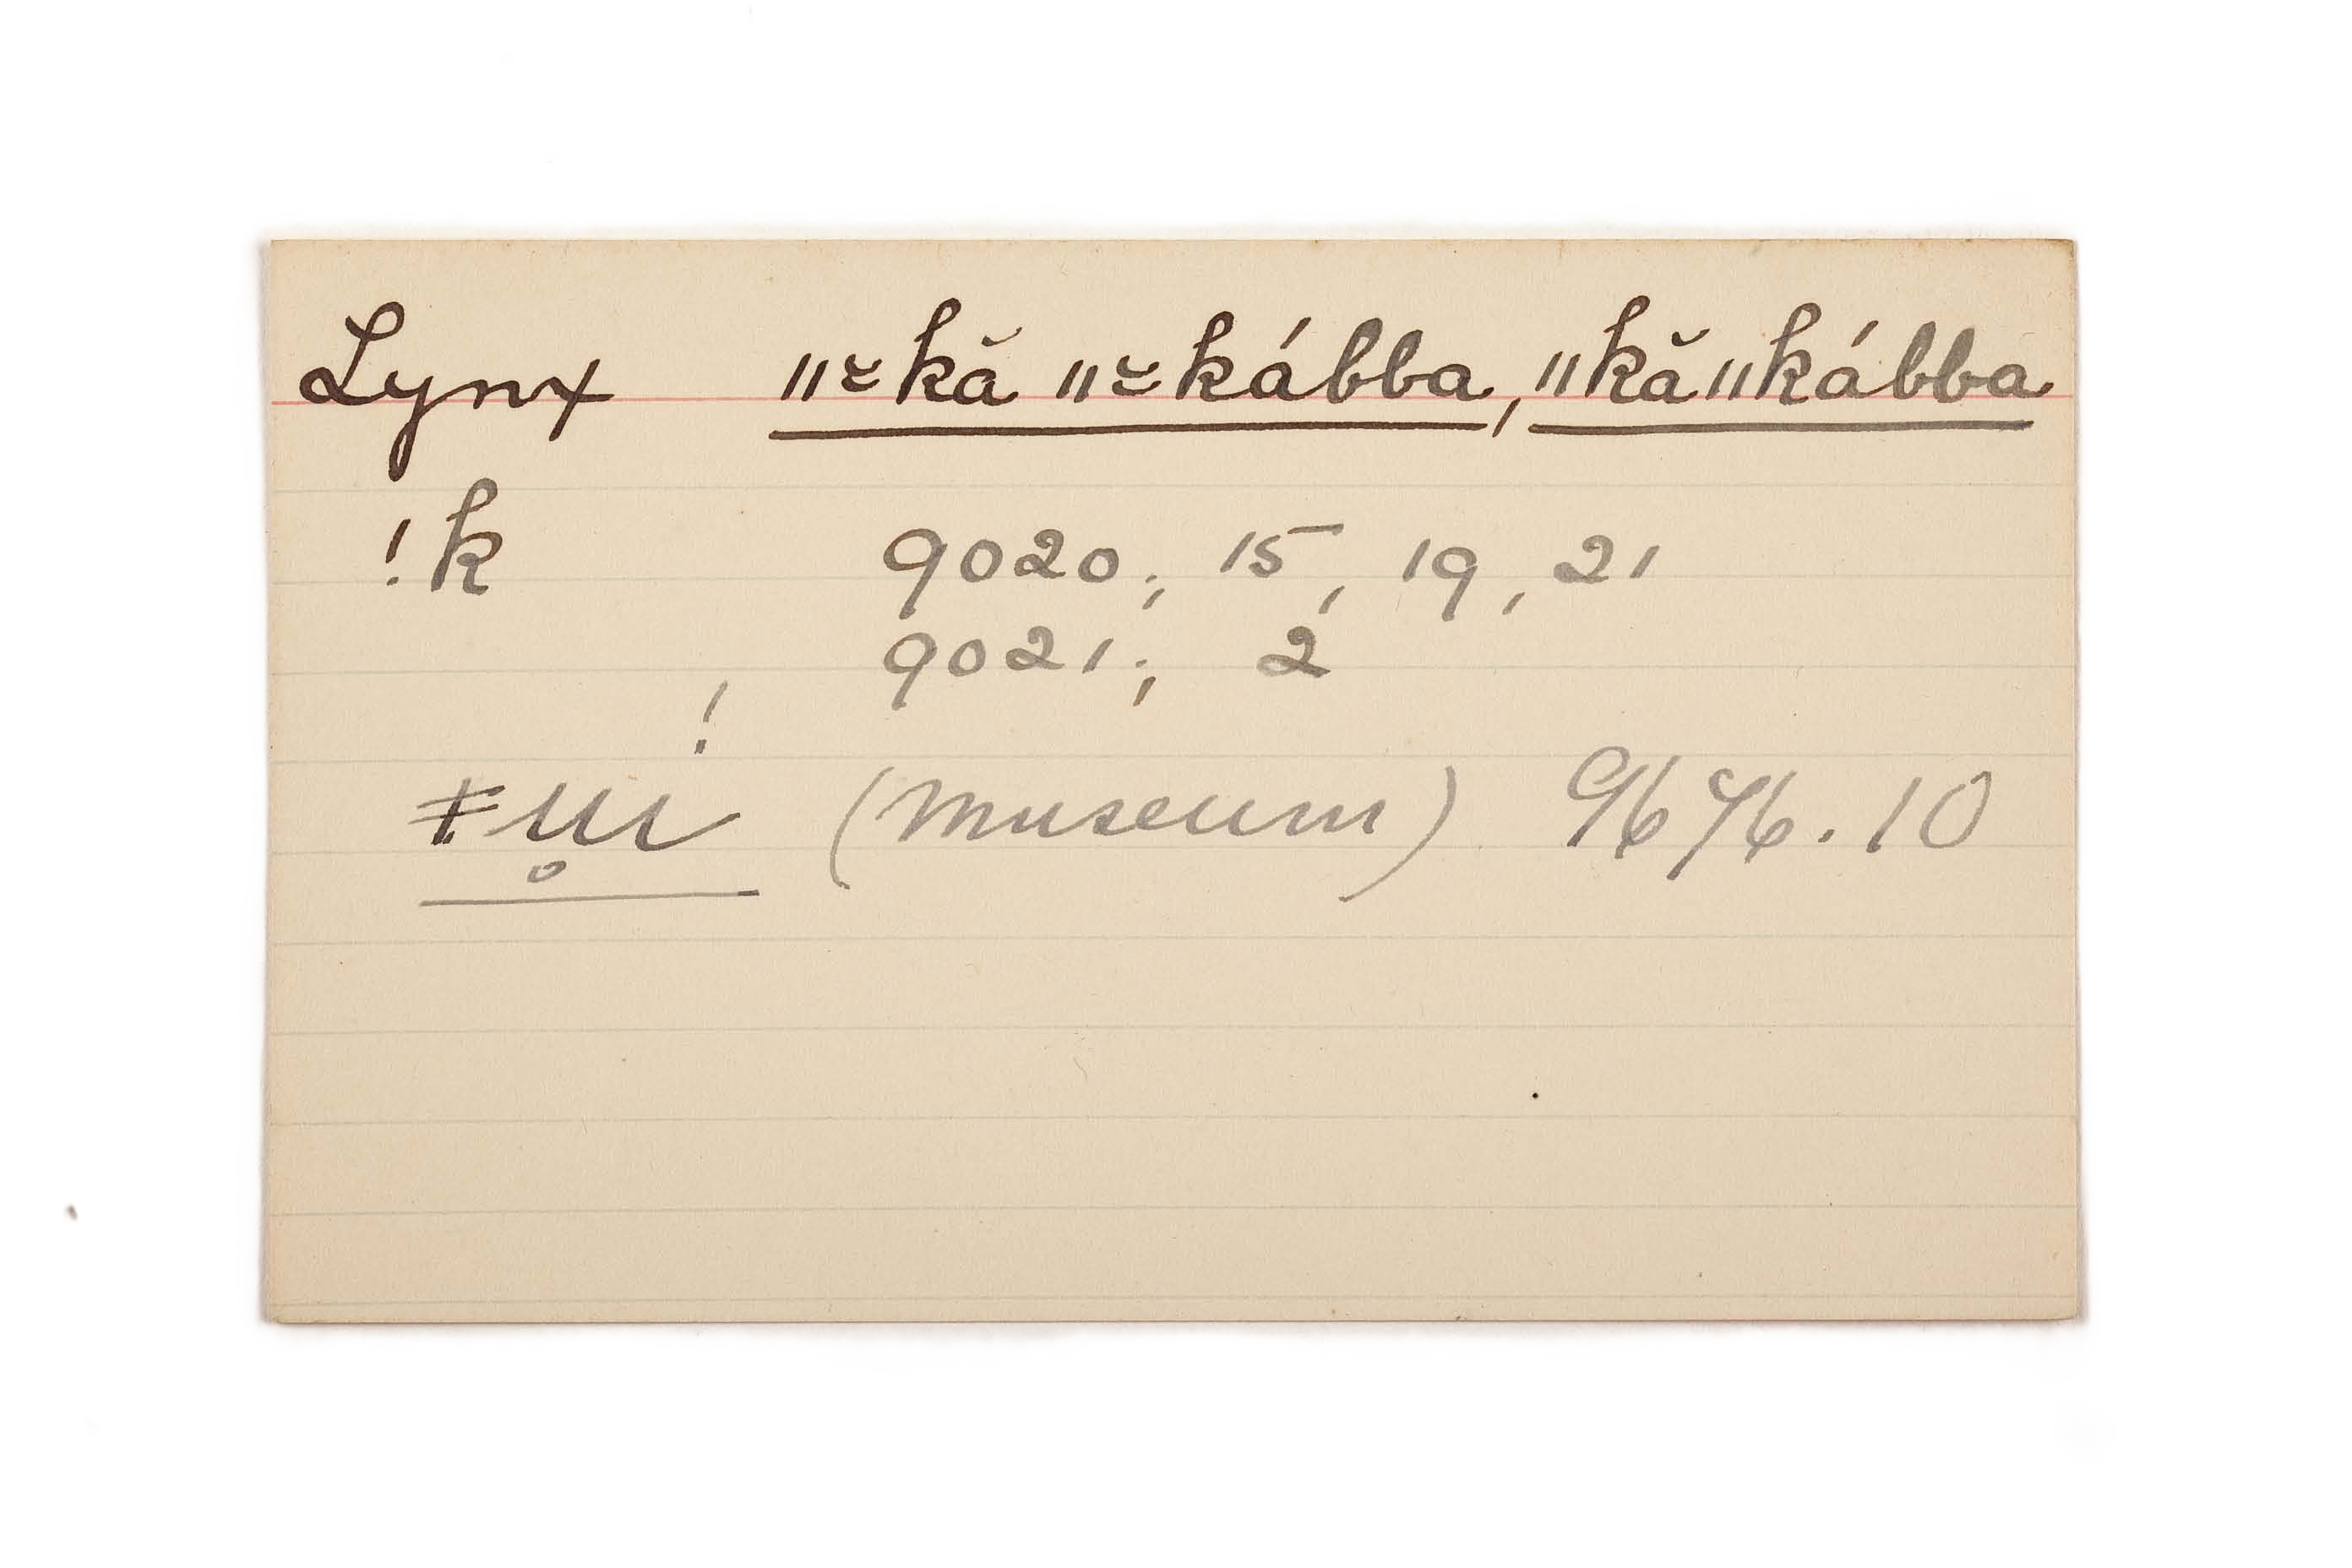 Lynx ǁ≈kă ǁ≈kábba, ǁkă ǁkábba
!k 9020; 15, 19, 21
9021; 2
!
(museum) 9676.10